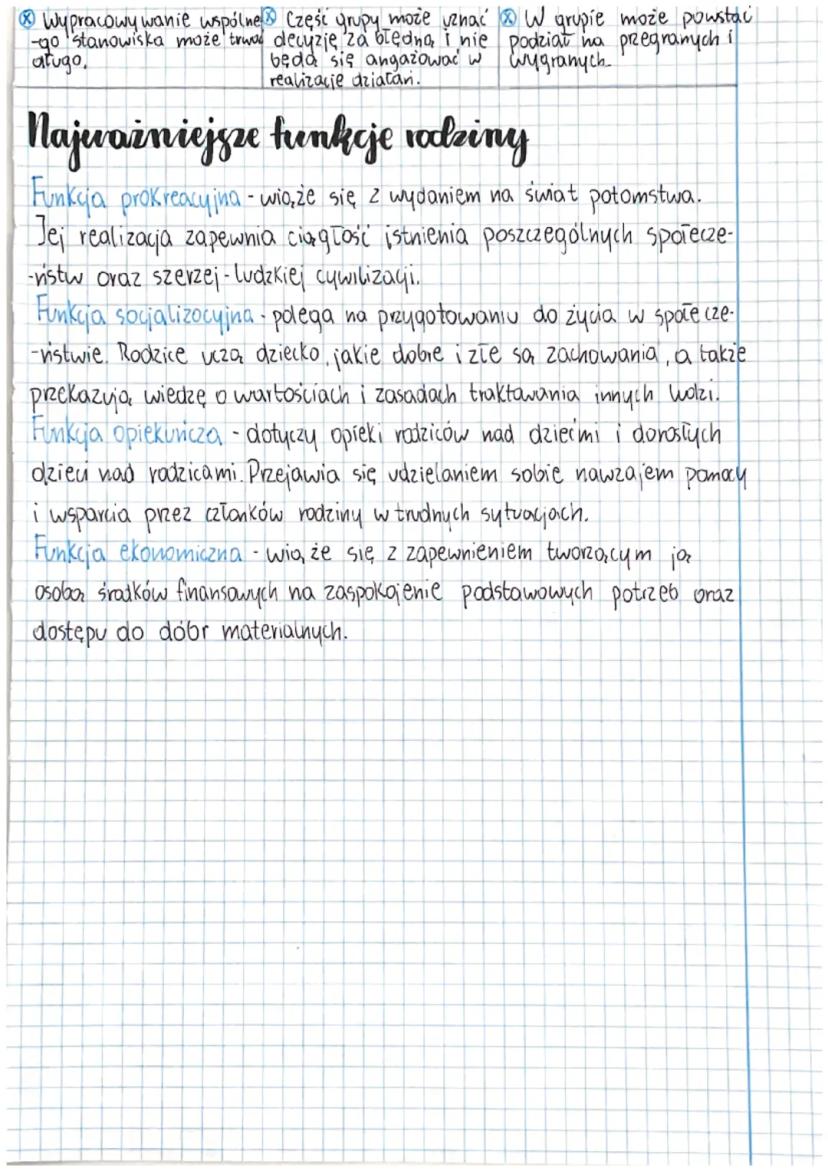 ⓧ Wypracowywanie wspólne-
-go stanowiska może trwać
długo.
ⓧ Część grupy może uznać
decyzję za błędną i nie
będą się angażować w
realizację działań.
ⓧ W grupie może powstać
podział na przegranych i
wygranych.
Najważniejsze funkcje rodziny
Funkcja prokreacyjna - wiąże się z wydaniem na świat potomstwa.
Jej realizacja zapewnia ciągłość istnienia poszczególnych społecze-
-ństw oraz szerzej - ludzkiej cywilizacji.
Funkcja socjalizacyjna - polega na przygotowaniu do życia w społecze-
-ństwie. Rodzice uczą dziecko, jakie dobre i złe są zachowania, a także
przekazują wiedzę o wartościach i zasadach traktowania innych ludzi.
Funkcja opiekuńcza - dotyczy opieki rodziców nad dziećmi i dorosłych
dzieci nad rodzicami. Przejawia się udzielaniem sobie nawzajem pomocy
i wsparcia przez członków rodziny w trudnych sytuacjach.
Funkcja ekonomiczna - wiąże się z zapewnieniem tworzącym ją
osobą środków finansowych na zaspokojenie podstawowych potrzeb oraz
dostępu do dóbr materialnych.